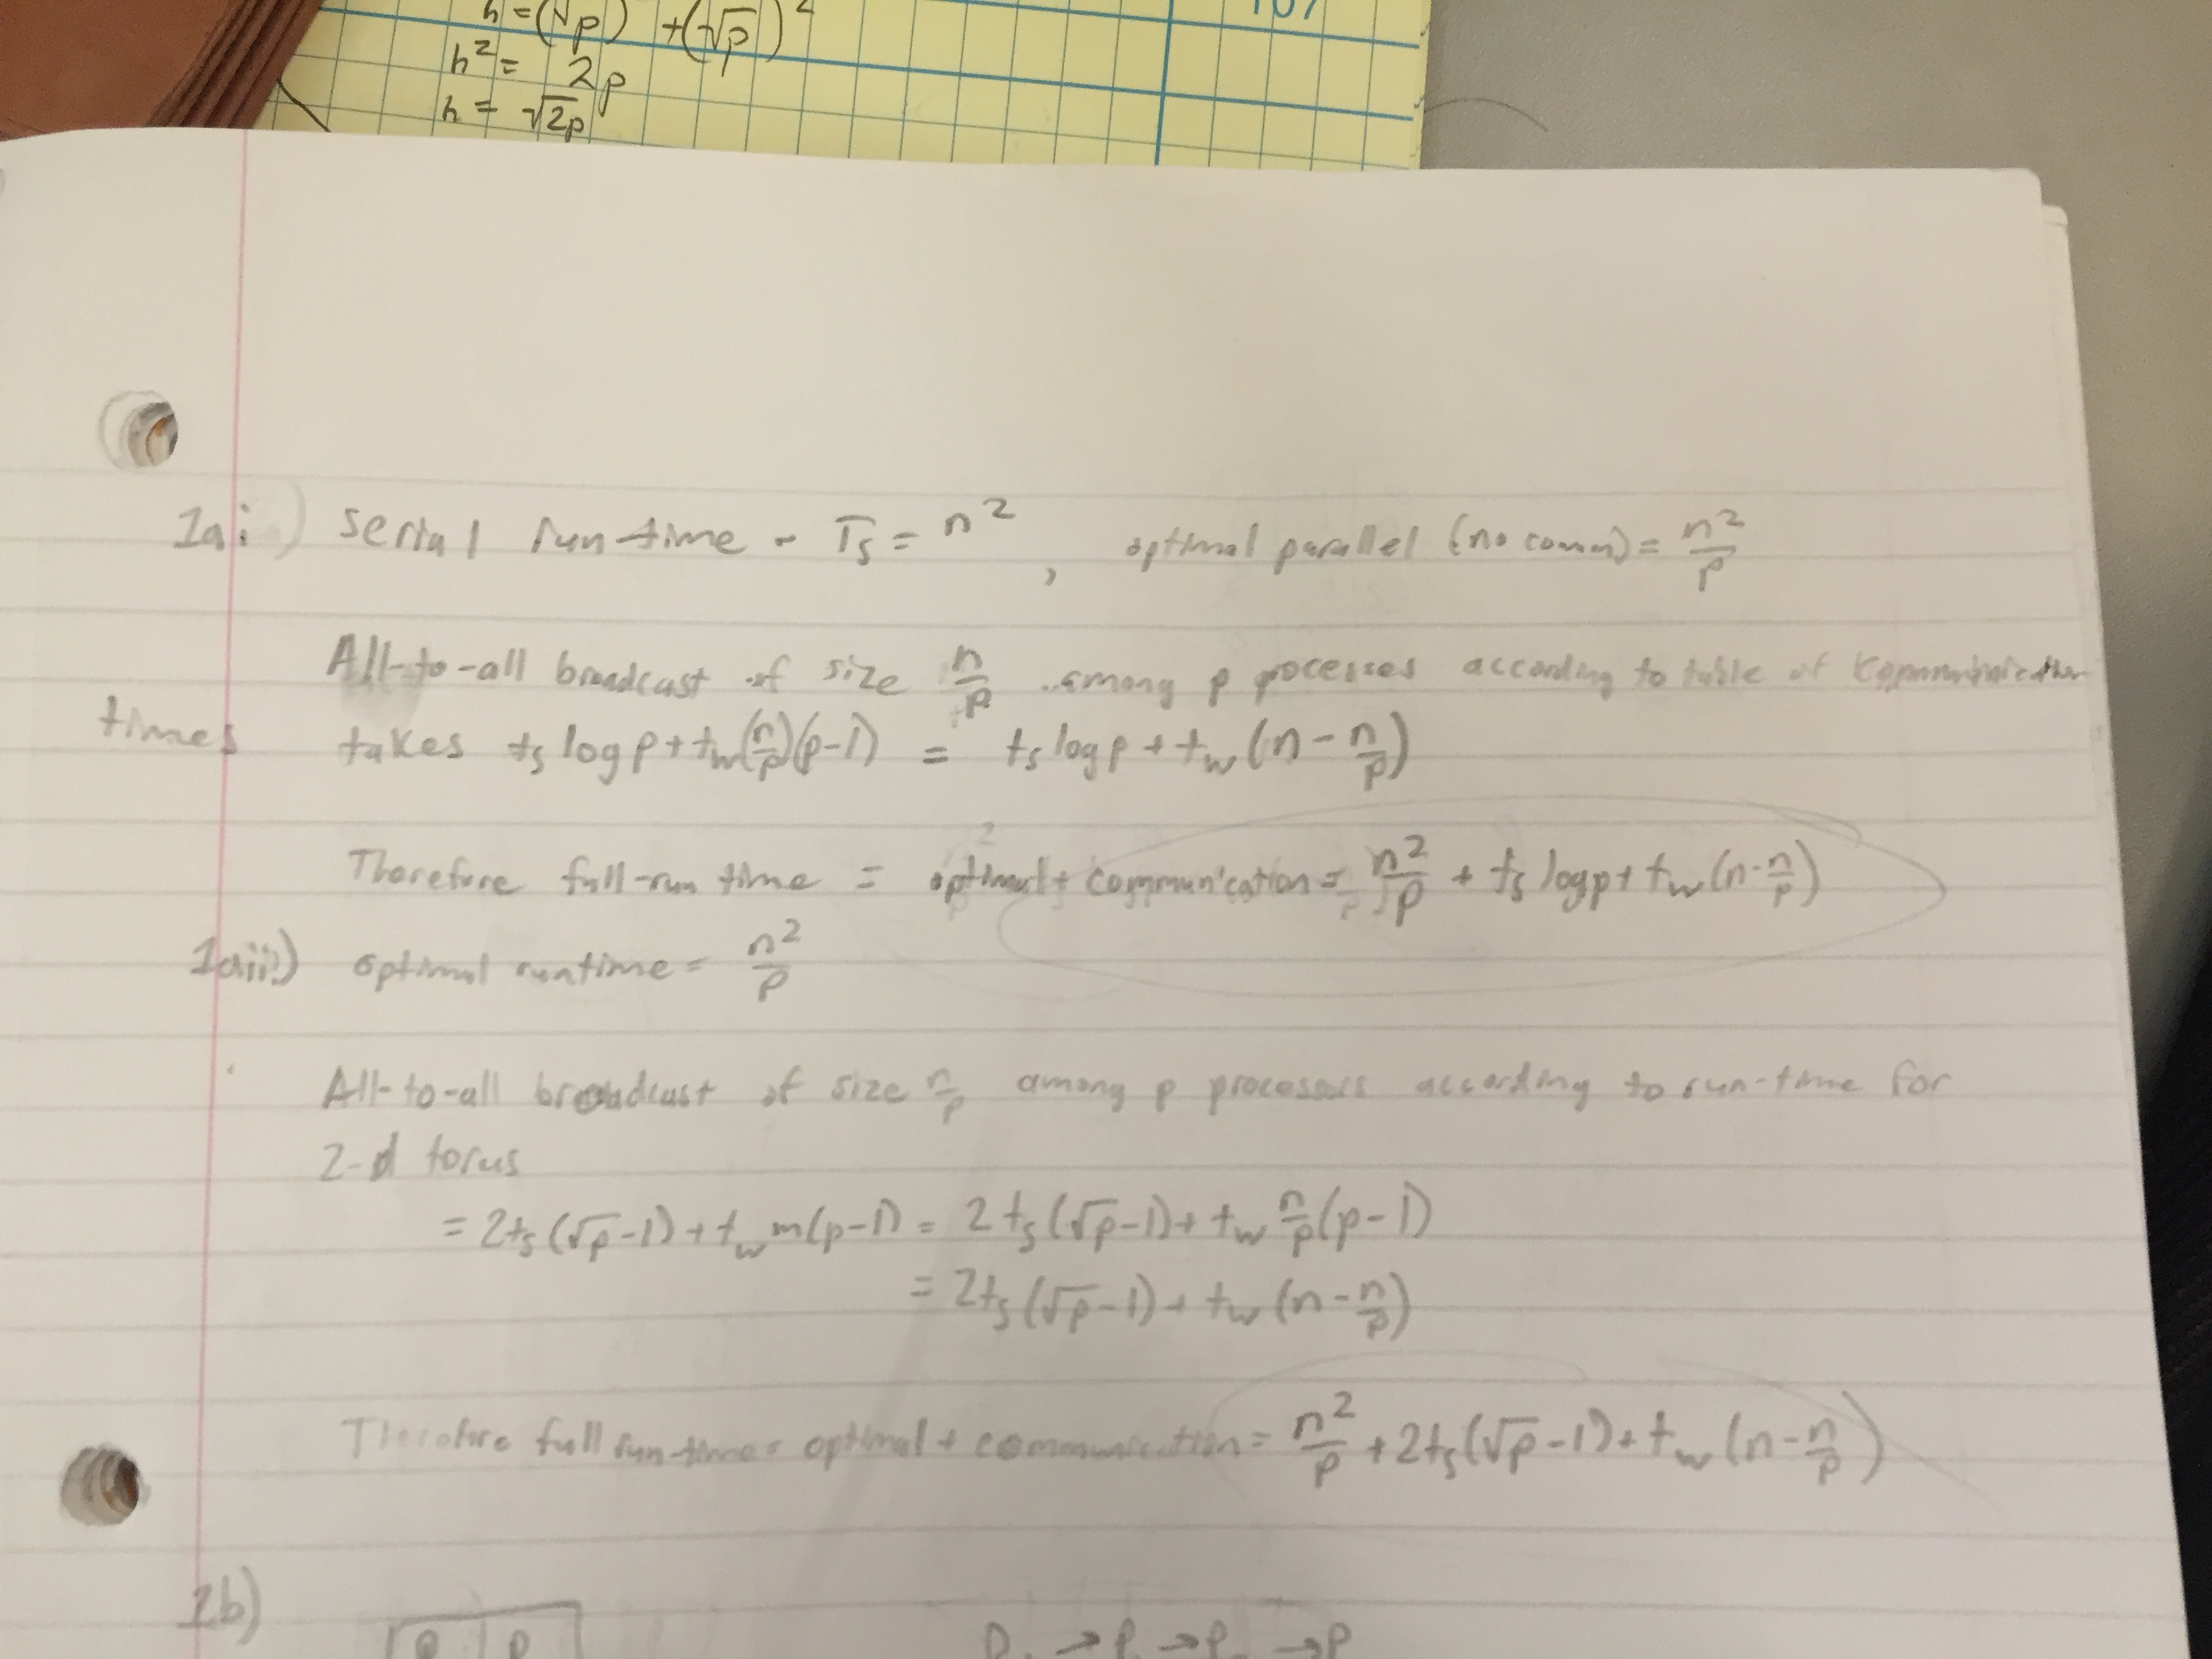 h = (√p) + (√p)²
h² = 2p
h = √2p
1ai) serial run-time - Ts = n² , optimal parallel (no comm) = n²/p
All-to-all broadcast of size n/p among p processes according to table of communication
times takes ts log p + tw(n/p)(p-1) = ts log p + tw(n - n/p)
Therefore full-run time = optimal + communication = n²/p + ts log p + tw(n - n/p)
1aii) optimal runtime = n²/p
All-to-all broadcast of size n/p among p processors according to run-time for
2-d torus
= 2ts(√p-1) + tw m(p-1) = 2ts(√p-1) + tw n/p (p-1)
= 2ts(√p-1) + tw(n - n/p)
Therefore full run-time = optimal + communication = n²/p + 2ts(√p-1) + tw(n - n/p)
1b)